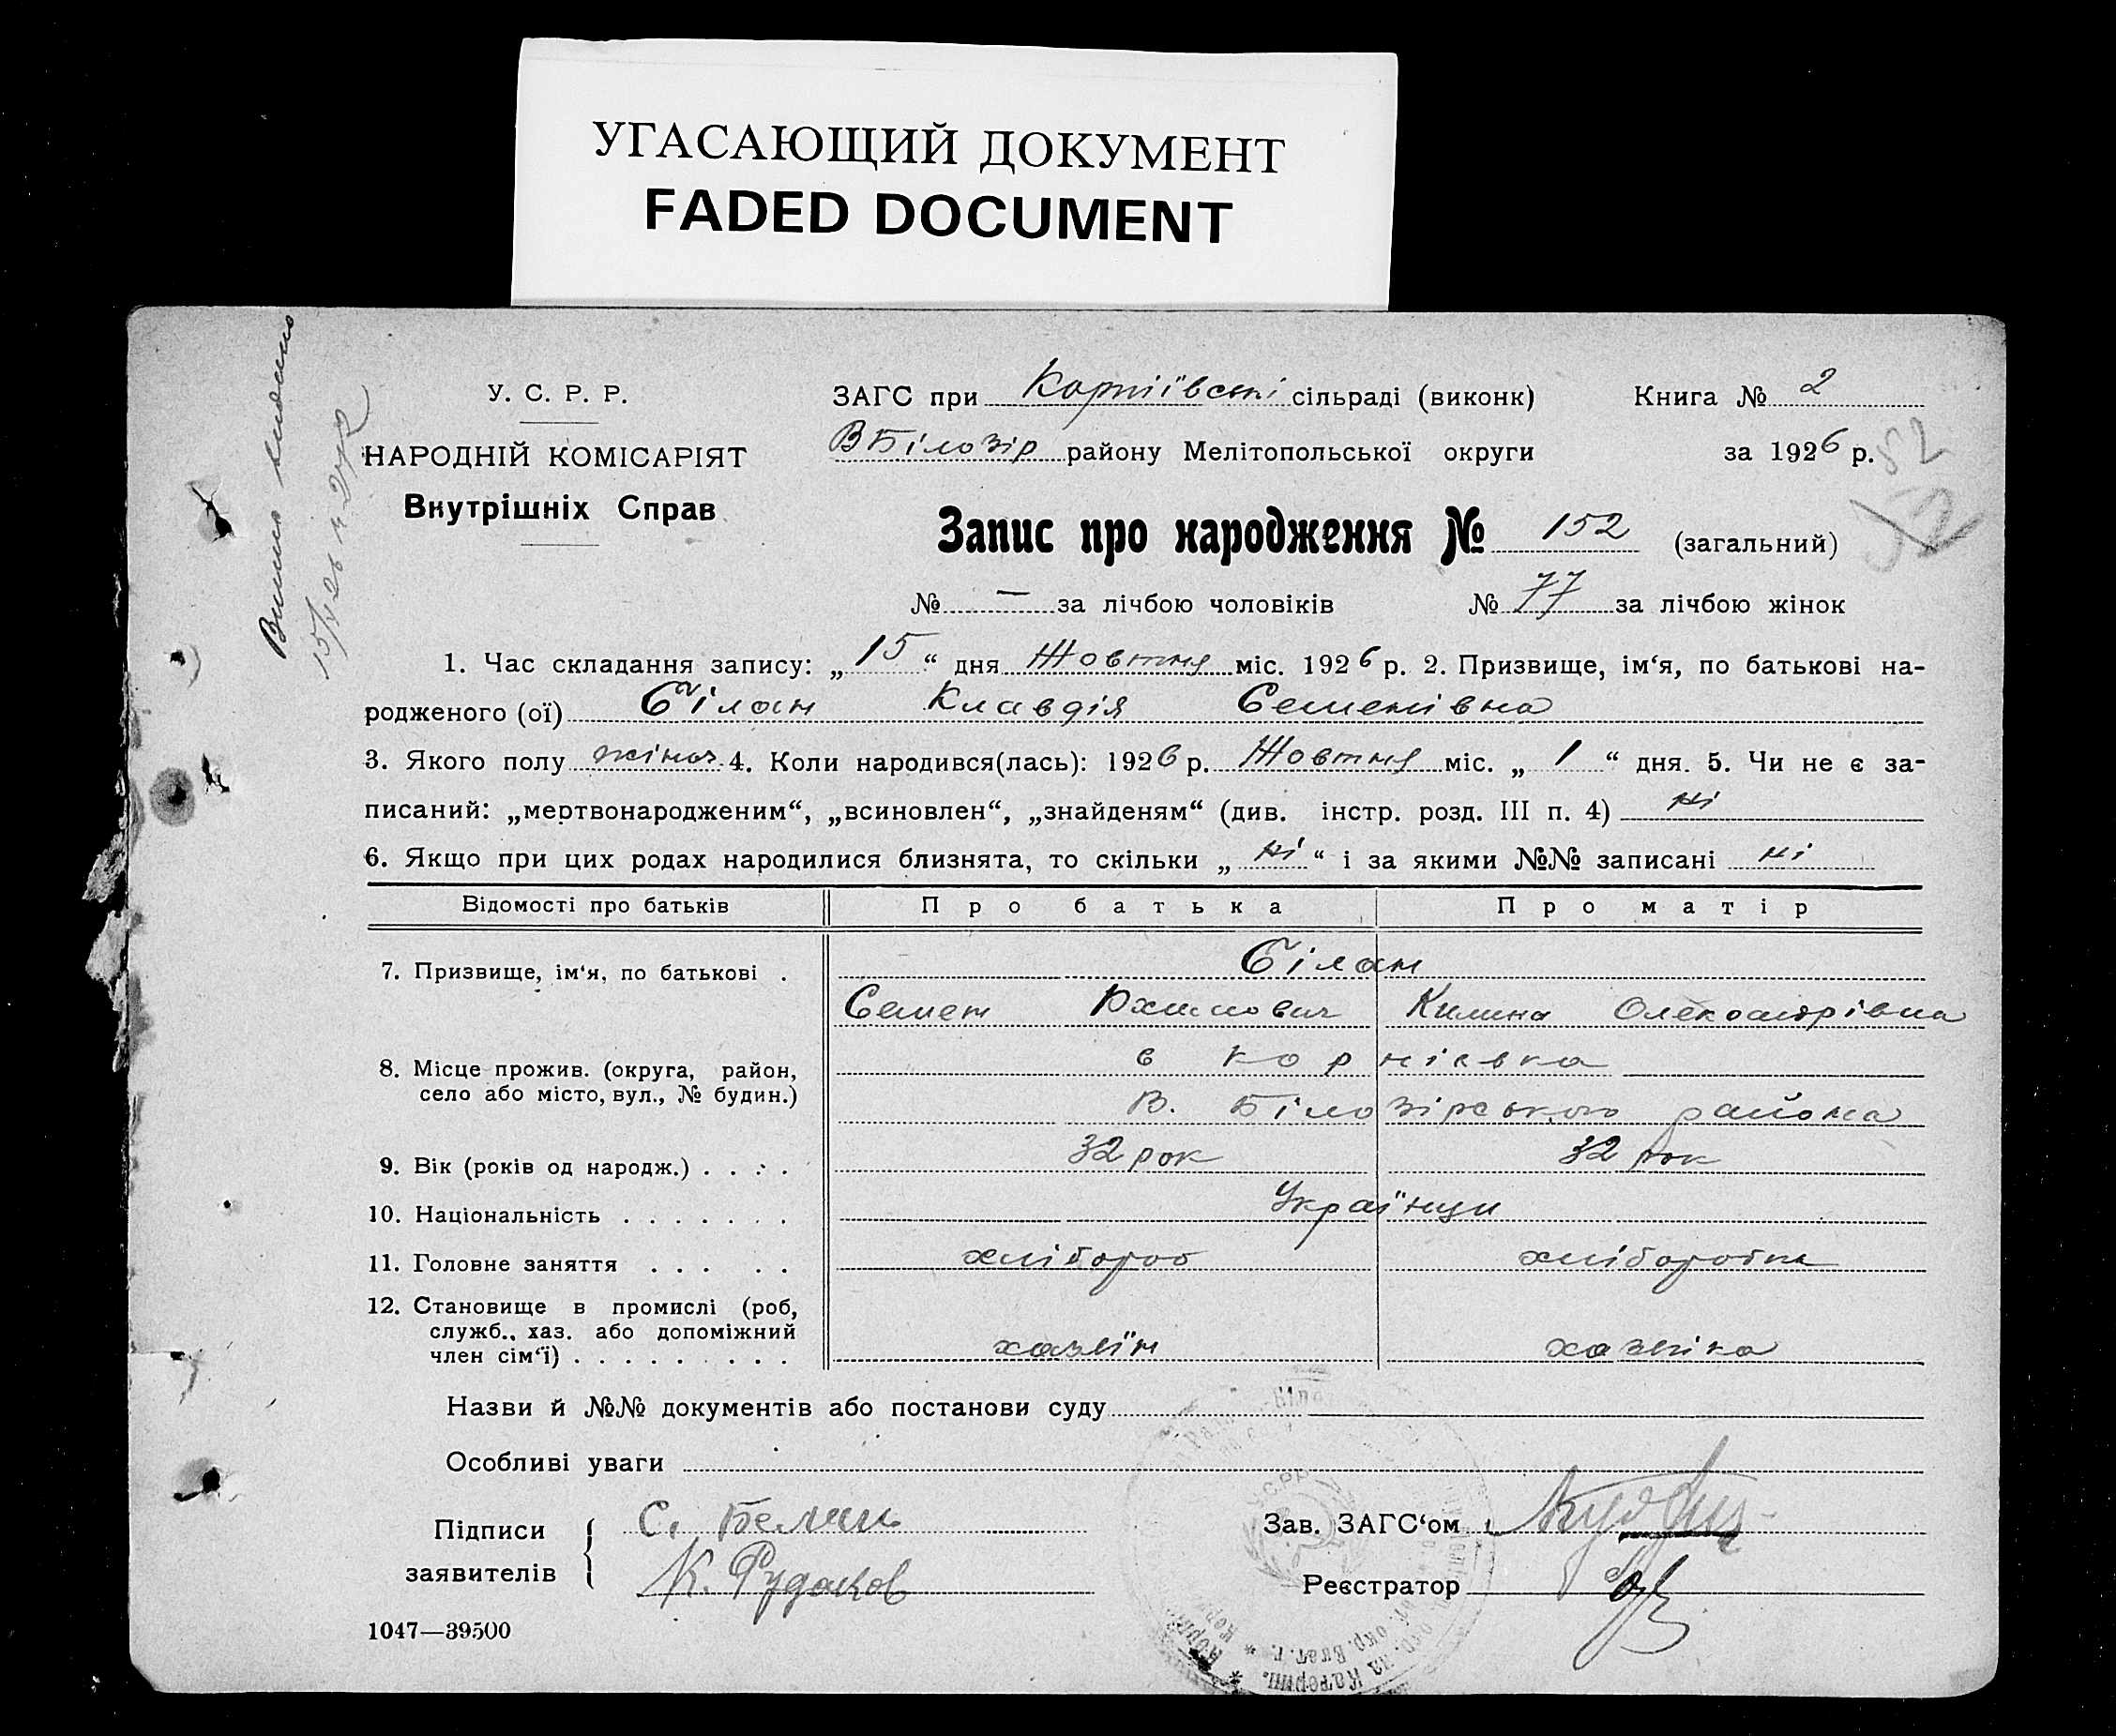 УГАСАЮЩИЙ ДОКУМЕНТ
FADED DOCUMENT
У. С. Р. Р.
НАРОДНІЙ КОМІСАРІЯТ
Внутрішніх Справ
ЗАГС при сільраді (виконк) Книга № 2
В Білозір району Мелітопольської округи за 1926 р.
52
52
Запис про народження № 152 (загальний)
№ — за лічбою чоловіків № 77 за лічбою жінок
1. Час складання запису: „ 15 “ дня Жовтня міс. 1926 р. 2. Призвище, ім‘я, по батькові на-
родженого (ої) Білан Клавдія Семенівна
3. Якого полу жіноч. 4. Коли народився(лась): 1926 р. Жовтня міс. „ 1 “ дня. 5. Чи не є за-
писаний: „мертвонародженим“, „всиновлен“, „знайденям“ (див. інстр. розд. III п. 4) ні
6. Якщо при цих родах народилися близнята, то скільки „ ні “ і за якими №№ записані ні
Відомості про батьків Про батька Про матір
7. Призвище, ім‘я, по батькові . Білан
Семен Килина Олександрівна
8. Місце прожив. (округа, район, с Корніевка
село або місто, вул., № будин.) В. Білозірського района
9. Вік (років од народж.) . . . . 32 рок 32 рок
10. Національність . . . . . . . Українци
11. Головне заняття . . . . . хлібороб хліборобка
12. Становище в промислі (роб,
служб., хаз. або допоміжний
член сім‘ї) . . . . . . . . . хазяїн хазяіка
Назви й №№ документів або постанови суду
Особливі уваги
Підписи С. Белан Зав. ЗАГС‘ом
заявителів К. Рудаков Реєстратор
1047—39500